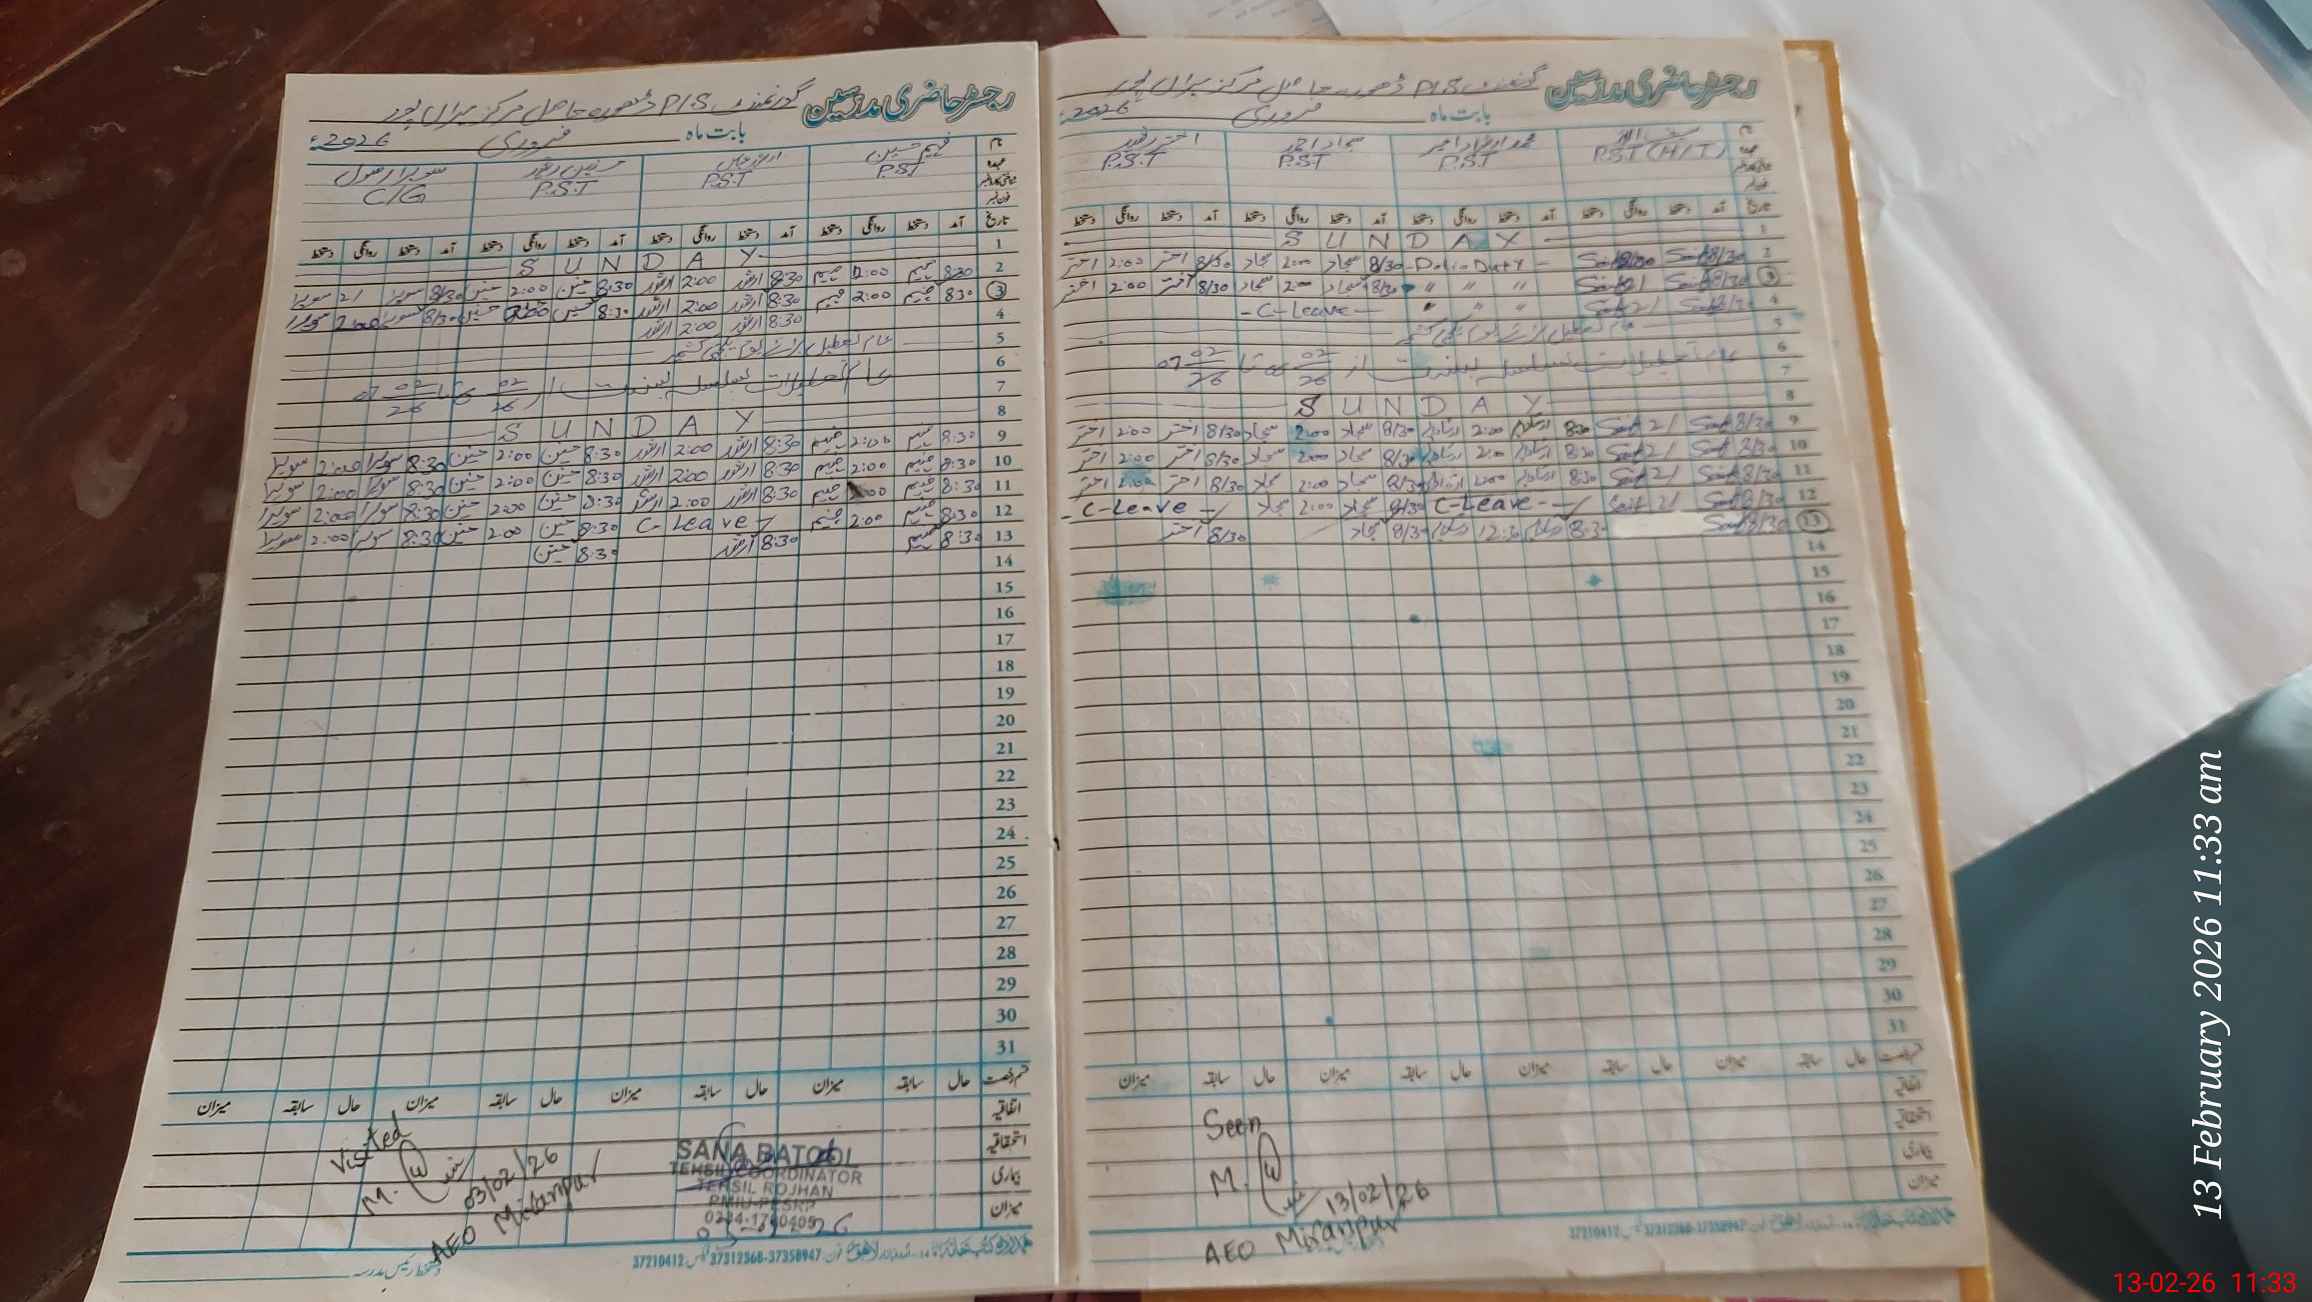 رجسٹر حاضری مدرسین گورنمنٹ P/S مرکز میراں پور
بابت ماہ فروری 2026ء
نام سیف اللہ محمد ارشاد احمد سجاد احمد اختر
عہدہ P.ST (H/T) P.ST P.ST P.S.T
تاریخ آمد دستخط روانگی دستخط آمد دستخط روانگی دستخط آمد دستخط روانگی دستخط آمد دستخط روانگی دستخط
1 SUNDAY
2 8/30 Saif Saif 8/30 سجاد 2:00 سجاد 8/30 اختر 2:00 اختر
3 8/30 Saif 2/ Saif " " " 8/30 سجاد 2:00 سجاد 8/30 اختر 2:00 اختر
4 8/30 Saif 2/ Saif " " " - C-Leave -
5 عام تعطیل یوم یکجہتی کشمیر
6 عام تعطیلات بسلسلہ بسنت از 02/26 تا 07 02/26
7
8 SUNDAY
9 8/30 Saif 2/ Saif 8:30 ارشاد 2:00 ارشاد 8/30 سجاد 2:00 سجاد 8/30 اختر 2:00 اختر
10 8/30 Saif 2/ Saif 8:30 ارشاد 2:00 ارشاد 8/30 سجاد 2:00 سجاد 8/30 اختر 2:00 اختر
11 8/30 Saif 2/ Saif 8:30 ارشاد 2:00 ارشاد 8/30 سجاد 2:00 سجاد 8/30 اختر 2:00 اختر
12 8/30 Saif 2/ Saif C-Leave 8/30 سجاد 2:00 سجاد - C-Leave
13 8/30 Saif 8:30 ارشاد 12:30 ارشاد 8/30 سجاد 8/30 اختر
14
15
16
17
18
19
20
21
22
23
24
25
26
27
28
29
30
31
قسم رخصت حال سابقہ میزان حال سابقہ میزان حال سابقہ میزان حال سابقہ میزان
اتفاقیہ
استحقاقیہ
بیماری
میزان
Seen
M.
13/02/26
AEO Miranpur
37210412 37312368-37358947
رجسٹر حاضری مدرسین گورنمنٹ P/S مرکز میراں پور
بابت ماہ فروری 2026ء
نام فہیم حسین سویرا رسول
عہدہ P.ST P.S.T P.S.T C/G
تاریخ آمد دستخط روانگی دستخط آمد دستخط روانگی دستخط آمد دستخط روانگی دستخط آمد دستخط روانگی دستخط
1 SUNDAY
2 8:30 فہیم 2:00 فہیم 8:30 2:00 8:30 حسنین 2:00 حسنین 8/30 سویرا 2/ سویرا
3 8:30 فہیم 2:00 فہیم 8:30 2:00 8:30 حسنین 2:00 حسنین 8/30 سویرا 2:00 سویرا
4 8:30 2:00
5 عام تعطیل یوم یکجہتی کشمیر
6 عام تعطیلات بسلسلہ بسنت از 02/26 تا 07 02/26
7
8 SUNDAY
9 8:30 فہیم 2:00 فہیم 8:30 2:00 8:30 حسنین 2:00 حسنین 8:30 سویرا 2:00 سویرا
10 8:30 فہیم 2:00 فہیم 8:30 2:00 8:30 حسنین 2:00 حسنین 8:30 سویرا 2:00 سویرا
11 8:30 فہیم 2:00 فہیم 8:30 2:00 8:30 حسنین 2:00 حسنین 8:30 سویرا 2:00 سویرا
12 8:30 فہیم 2:00 فہیم C-Leave 8:30 حسنین 2:00 حسنین 8:30 سویرا 2:00 سویرا
13 8:30 فہیم 8:30 8:30 حسنین
14
15
16
17
18
19
20
21
22
23
24
25
26
27
28
29
30
31
قسم رخصت حال سابقہ میزان حال سابقہ میزان حال سابقہ میزان حال سابقہ میزان
اتفاقیہ
استحقاقیہ
بیماری
میزان
Visited
M.
03/02/26
AEO Miranpur
SANA BATOOL
TEHSIL COORDINATOR
TEHSIL ROJHAN
PMIU-PESRP
37210412 37312368-37358947
دستخط رئیس مدرسہ
13 February 2026 11:33 am
13-02-26 11:33